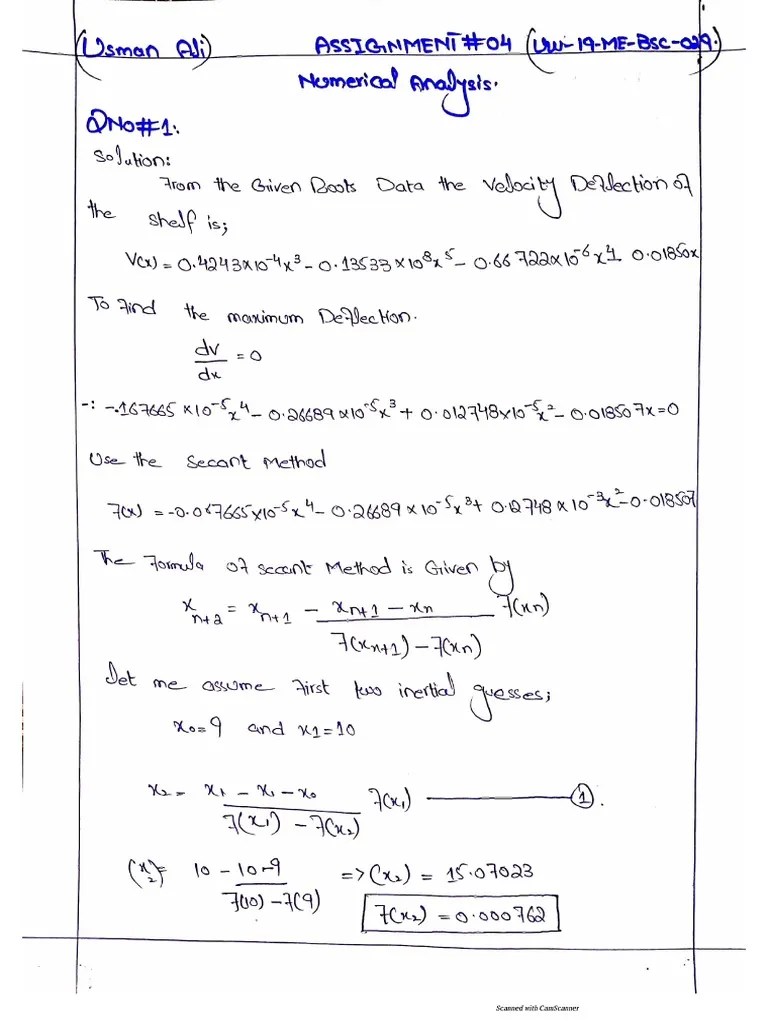 (Usman Ali) ASSIGNMENT#04 (UW-19-ME-BSC-029)
Numerical Analysis.
QNo#1:
Solution:
From the Given Roots Data the Velocity Deflection of
the shelf is;
V(x) = 0.4243x10⁻⁴x³ - 0.13533x10⁸x⁵ - 0.66722x10⁻⁶x⁴ - 0.01850x
To Find the maximum Deflection.
dv/dx = 0
-: -.167665 x10⁻⁵x⁴ - 0.26689x10⁻⁵x³ + 0.012748x10⁻⁵x² - 0.018507x=0
Use the Secant Method
f(x) = -0.067665x10⁻⁵x⁴ - 0.26689x10⁻⁵x³ + 0.12748x10⁻³x² - 0.018507
The Formula of Secant Method is Given by
xn+2 = xn+1 - xn+1 - xn / f(xn+1) - f(xn) f(xn)
Let me assume First two inertial guesses;
x₀=9 and x1=10
x₂ = x₁ - x₁ - x₀ / f(x₁) - f(x₂) f(x₁) ——— 1.
(x₂)= 10 - 10-9 / f(10) - f(9) => (x₂) = 15.07023
f(x₂) = 0.000762
Scanned with CamScanner